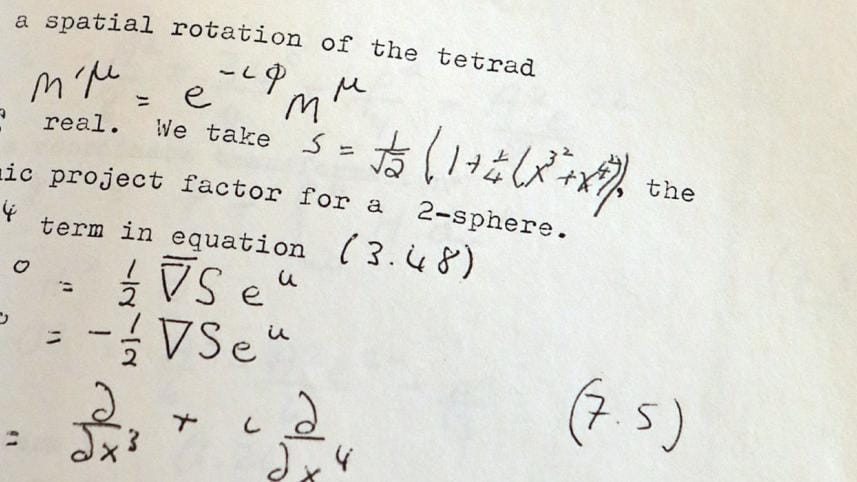 a spatial rotation of the tetrad
m'^μ = e^{-iφ} m^μ
real. We take S = 1/√2 (1+1/4(x^{3^2}+x^{4^2})), the
ic project factor for a 2-sphere.
4 term in equation (3.48)
0 = 1/2 ∇̄S e^u
= -1/2 ∇S e^u
= ∂/∂x^3 + i ∂/∂x^4 (7.5)